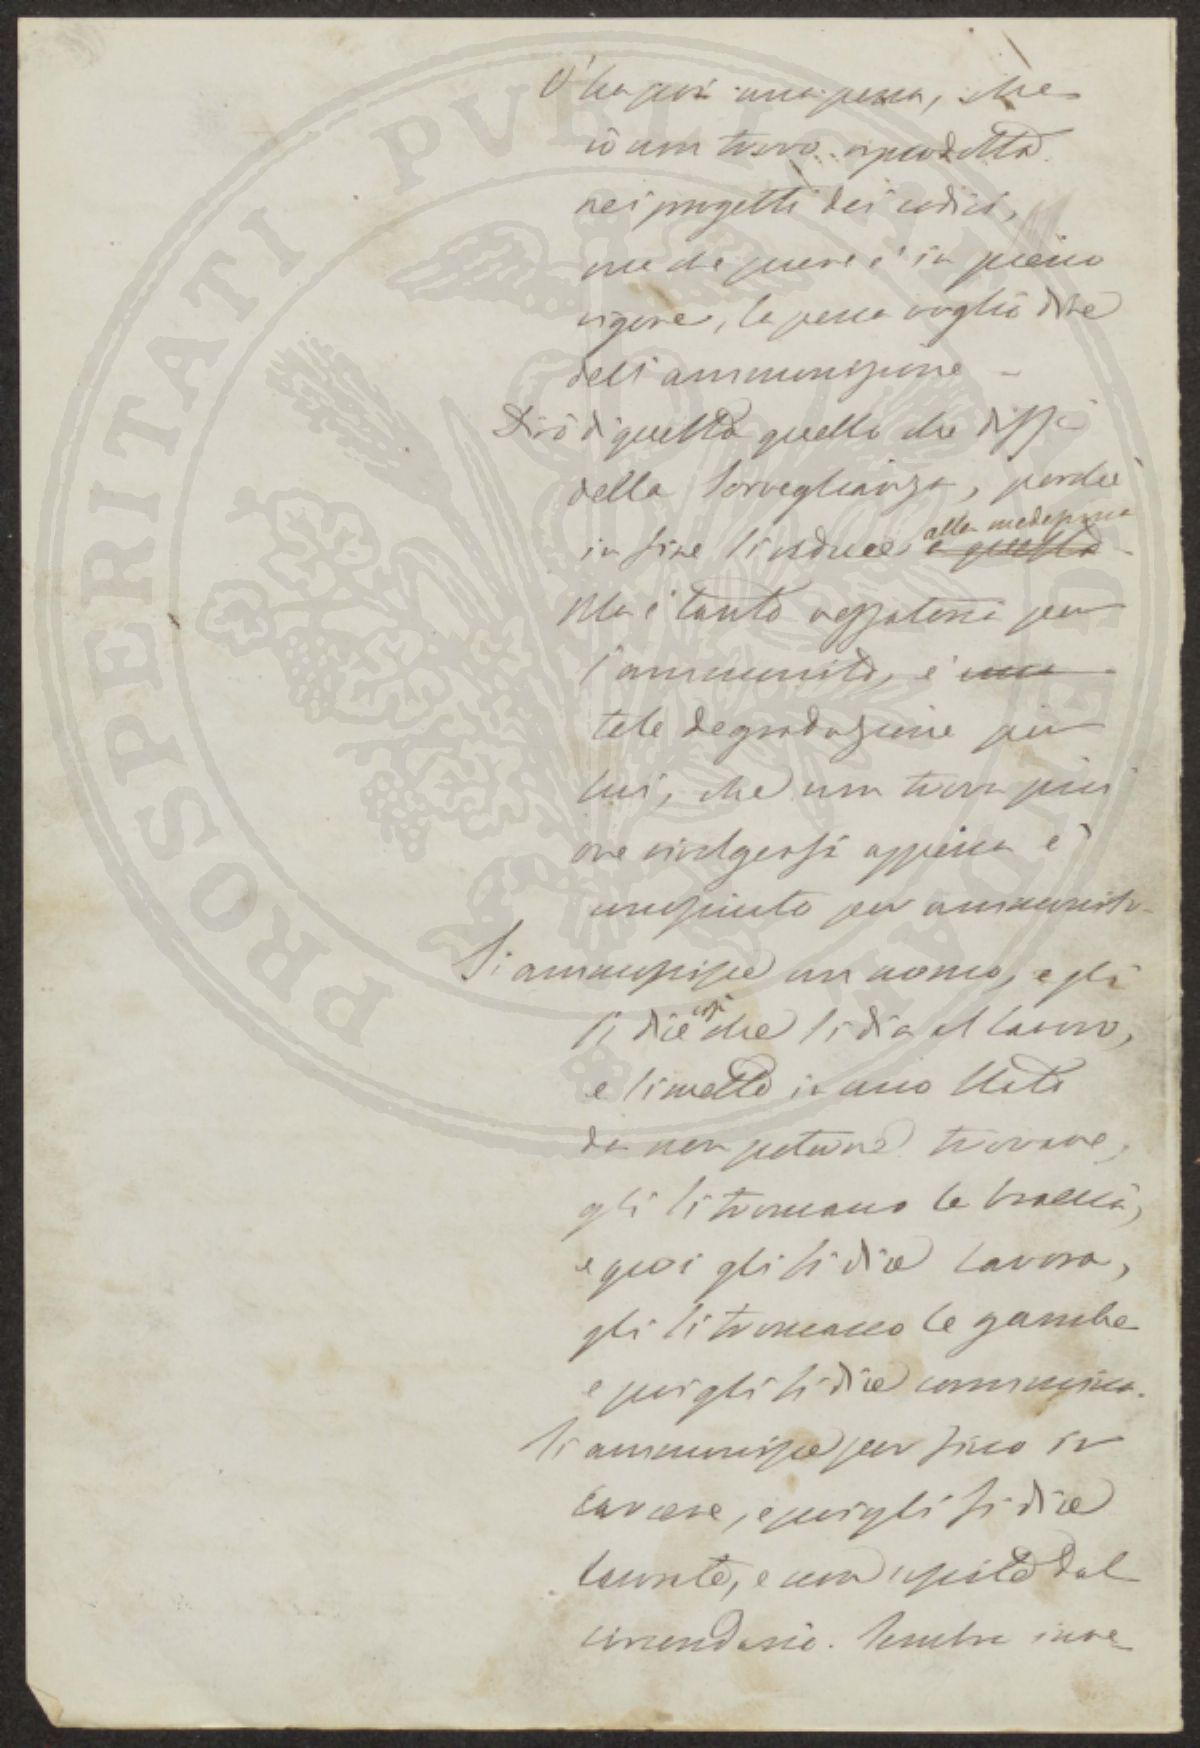 V'ha poi una pena, che
io non trovo riprodotta
nei progetti dei codici,
ma che pure è in pieno
vigore, la pena voglio dire
dell'ammonizione -
Dirò di questa quello che dissi
della sorveglianza, perchè
in fine si riduce alla medesima a questa
Ma è tanto vessatoria per
l'ammonito, è una
tale degradazione per
lui, che non trova più
ove rivolgersi appena è
conosciuto per ammonito -
Si ammonisce un uomo, e gli
si dice così che si dia al lavoro,
e si mette in uno stato
da non poterne trovare,
gli si troncano le braccia,
e poi gli si dice lavora,
gli si troncano le gambe
e poi gli si dice cammina.
Si ammonisce per fino in
carcere, e poi gli si dice
lavorate, e non uscite dal
circondario. Sembra inve-
PROSPERITATI PUBLICAE